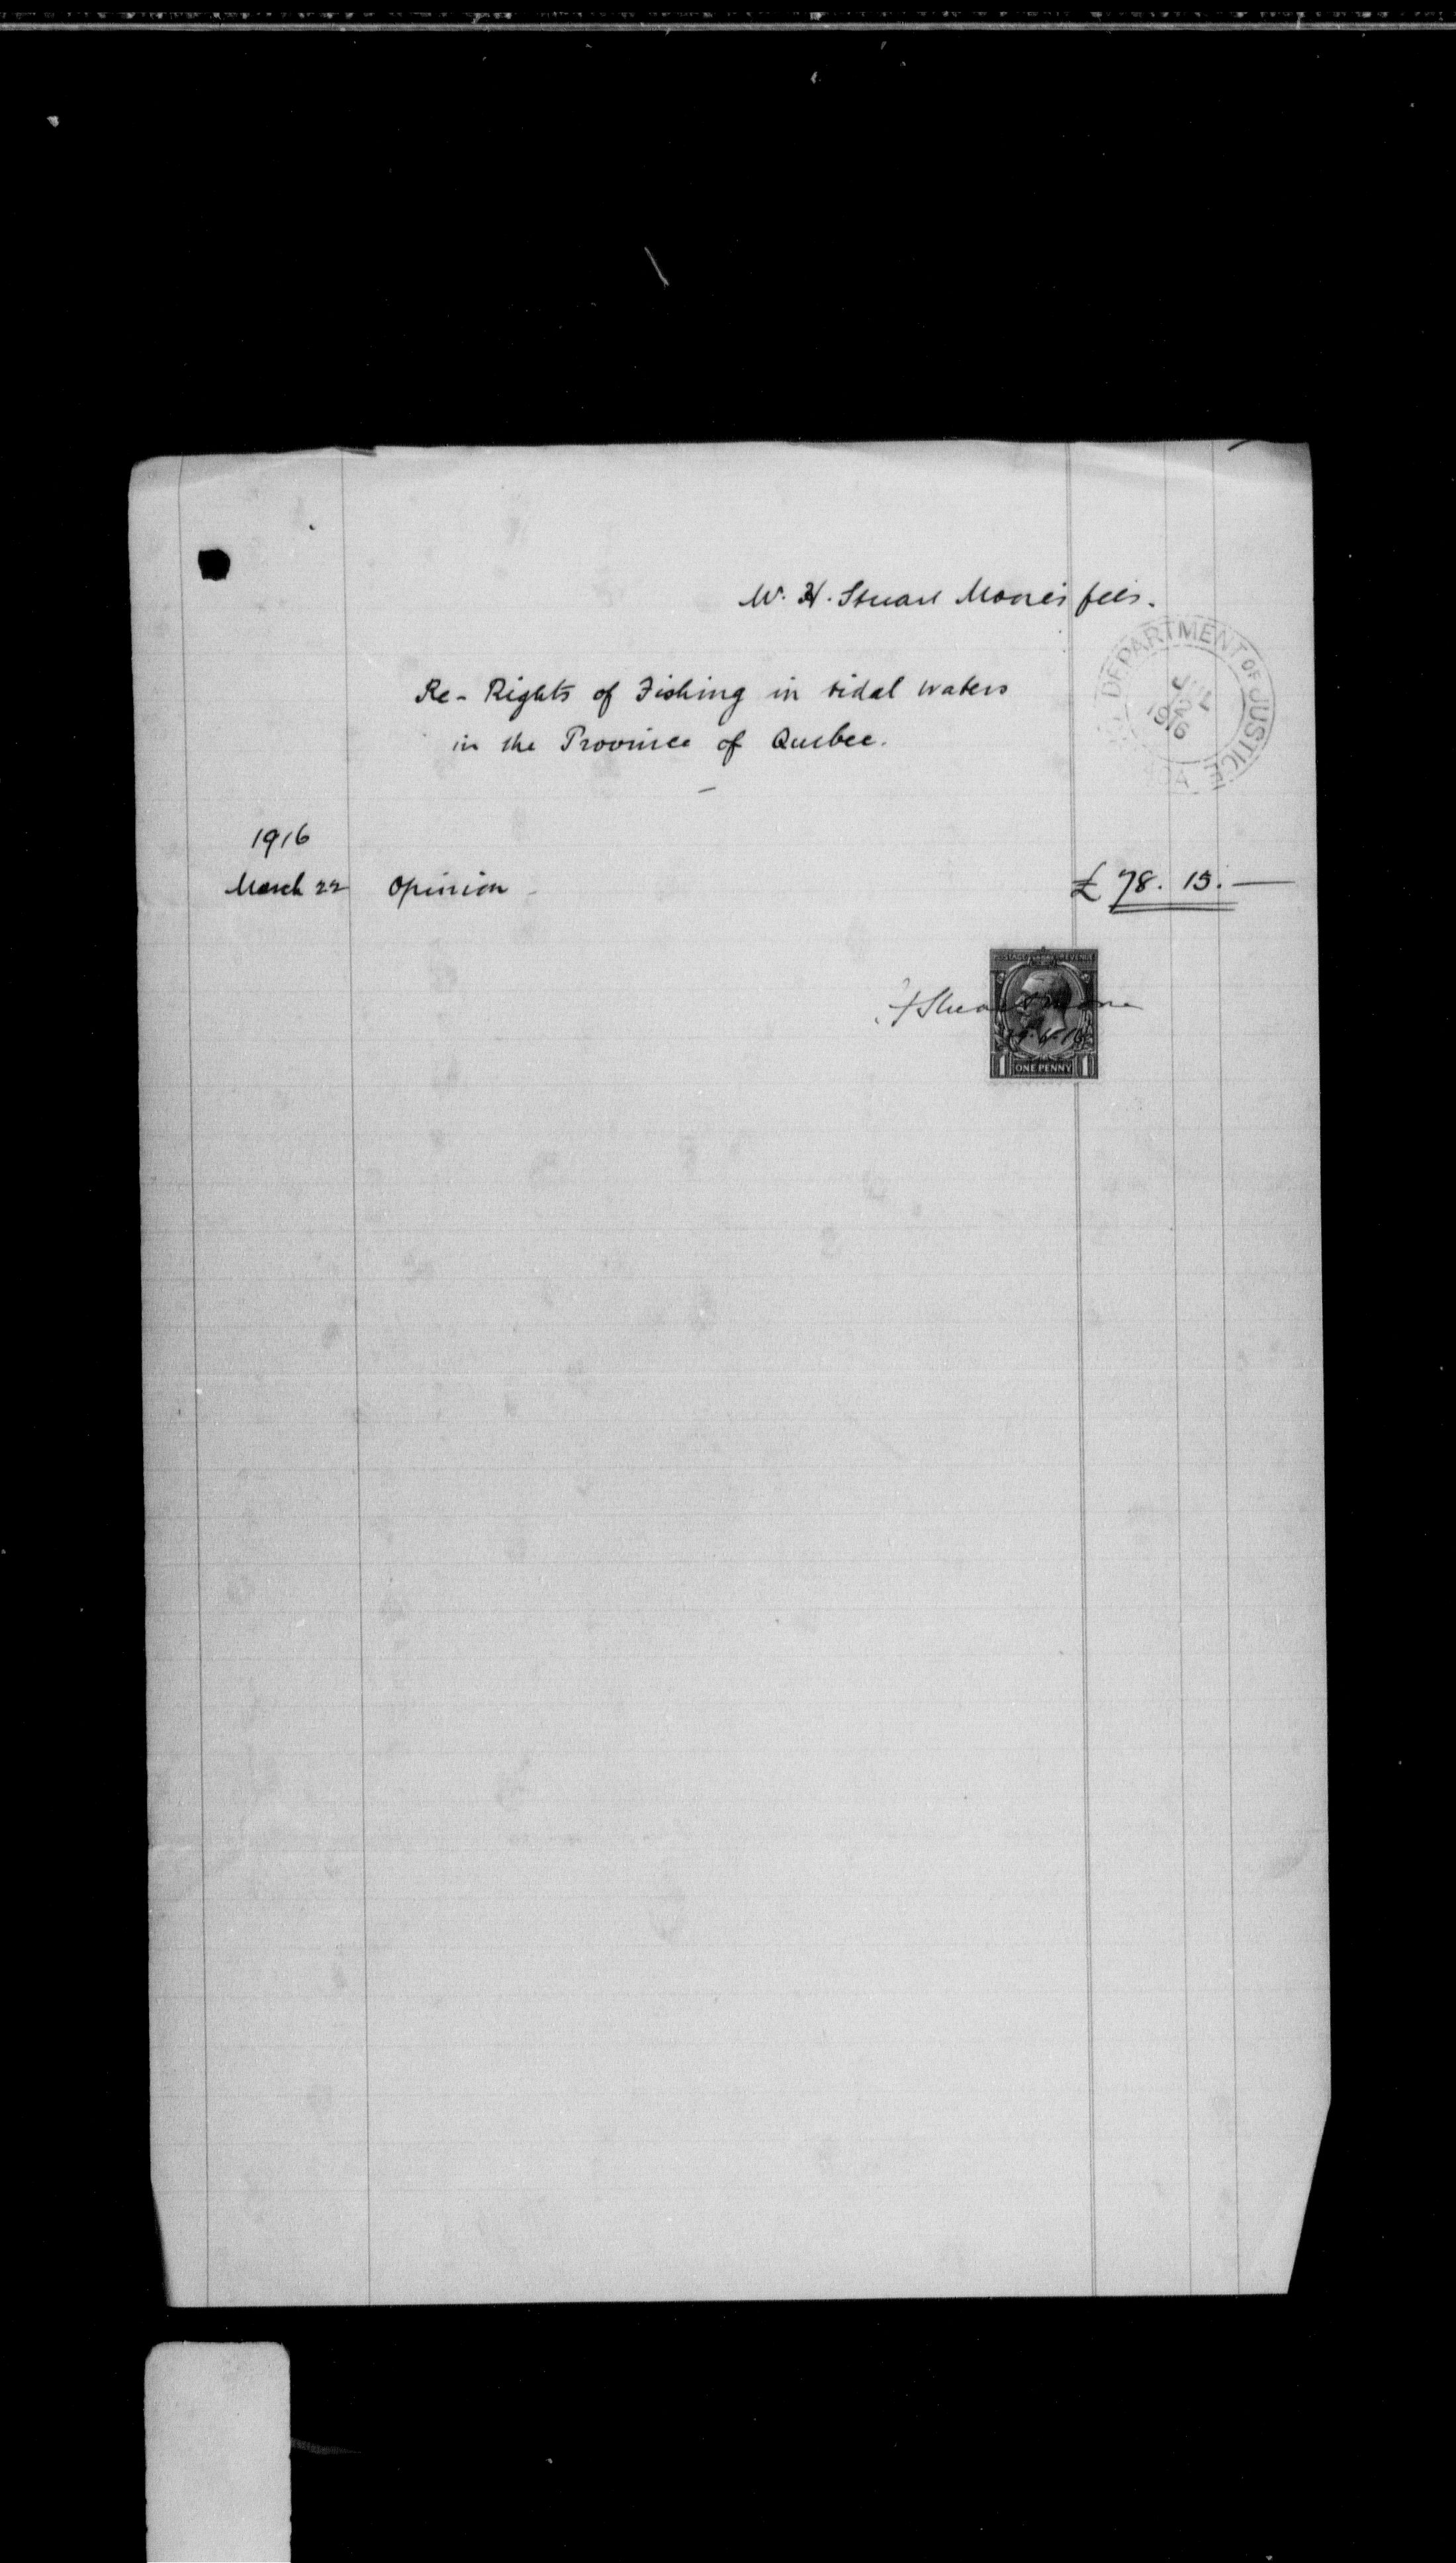 Mr. H. Stuart Moore's fees.
DEPARTMENT OF JUSTICE
JUL
1916
Re - Rights of Fishing in tidal waters
in the Province of Quebec.
1916
March 22 Opinion - £ 78. 15. —
POSTAGE REVENUE
H Stuart Moore
1 ONE PENNY 1